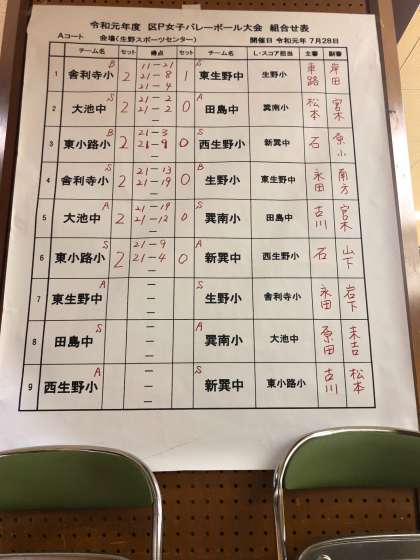 令和元年度 区P女子バレーボール大会 組合せ表
Aコート 会場(生野スポーツセンター) 開催日 令和元年 7月28日
チーム名 セット 得点 セット チーム名 L・スコア担当 主審 副審
1 舎利寺小 B 2 11-21 21-8 21-4 1 S 東生野中 生野小 東路 岸田
2 大池中 S 2 21-2 21-2 0 A 田島中 巽南小 松本 宮木
3 東小路小 B 2 21-3 21-9 0 S 西生野小 新巽中 石 原小
4 舎利寺小 S 2 21-13 21-19 0 B 生野小 東生野中 永田 南方
5 大池中 A 2 21-19 21-12 0 S 巽南小 田島中 古川 宮木
6 東小路小 S 2 21-9 21-4 0 A 新巽中 西生野小 石 山下
7 東生野中 A - - - S 生野小 舎利寺小 永田 岩下
8 田島中 S - - - A 巽南小 大池中 原田 末吉
9 西生野小 A - - - S 新巽中 東小路小 古川 松本